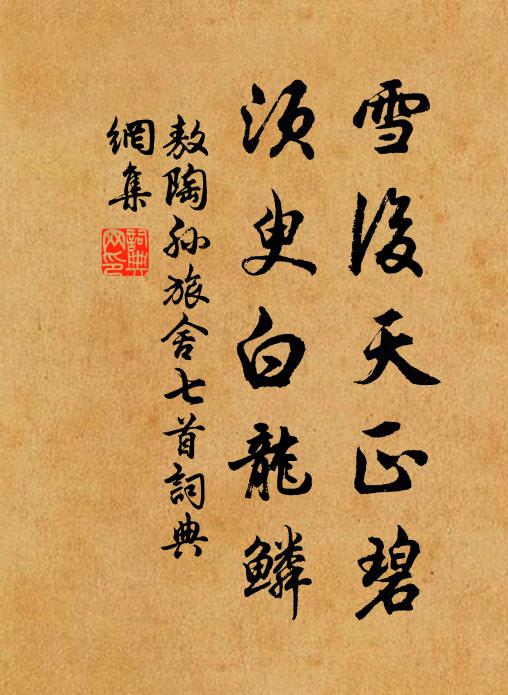 雪後天正碧
須臾白龍鱗
敖陶孫旅舍七首詞典
網集
詞典
網印